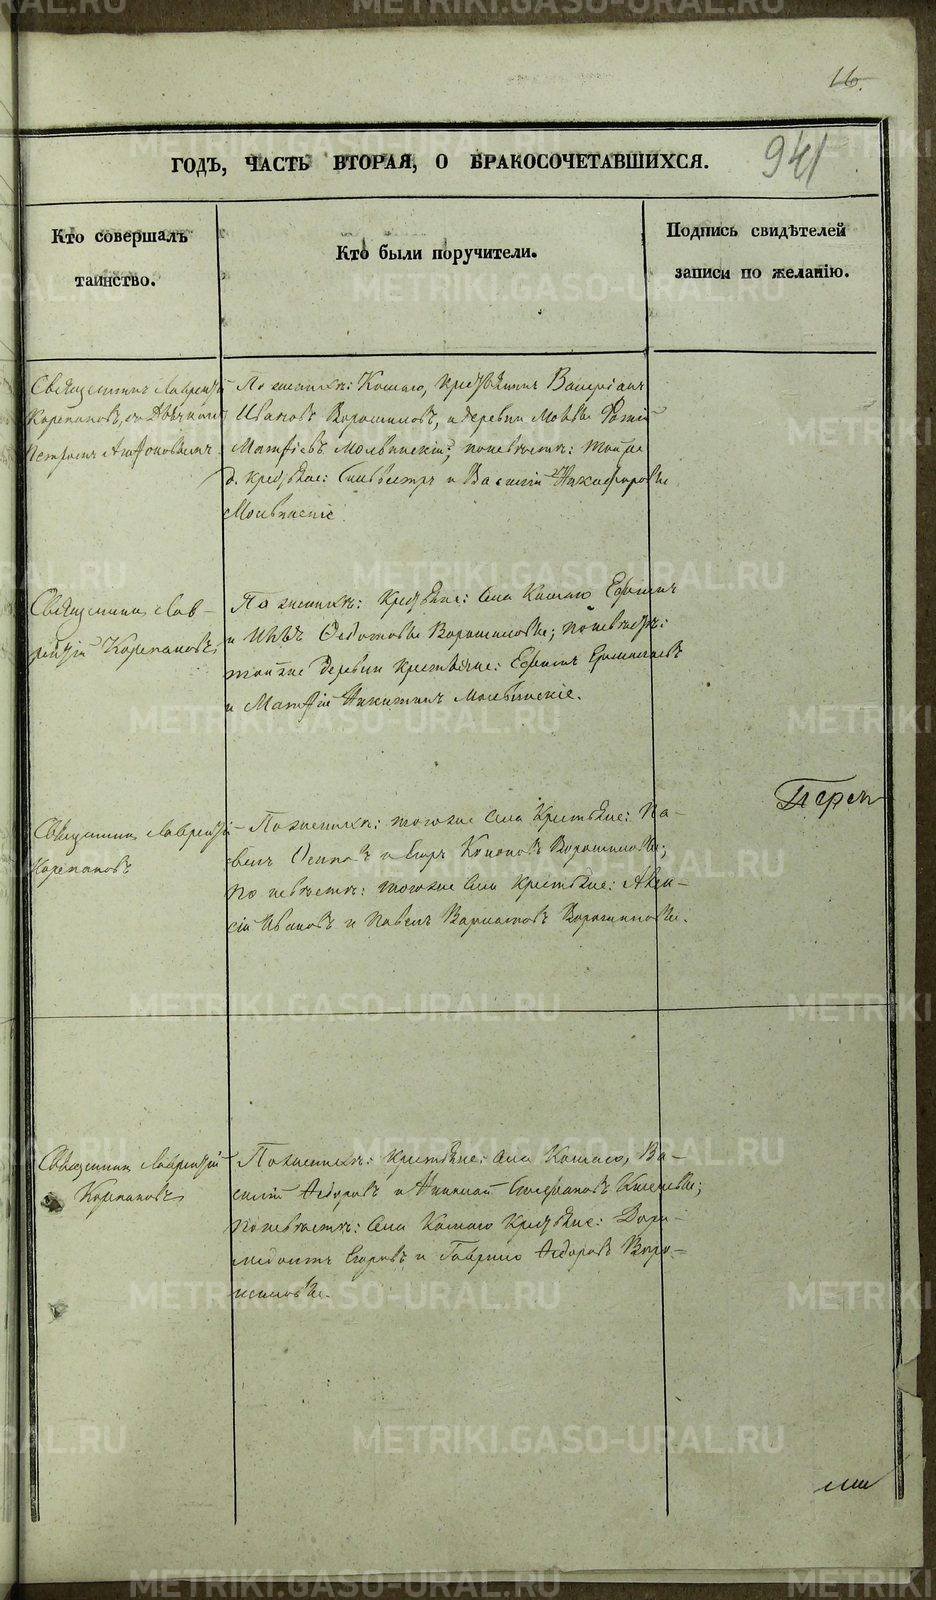 16.
941
ГОДЪ, ЧАСТЬ ВТОРАЯ, О БРАКОСОЧЕТАВШИХСЯ.
Кто совершалъ
таинство.
Кто были поручители.
Подпись свидѣтелей
записи по желанію.
Священникъ Лаврентій
Корепановъ, съ
Петромъ
По женихѣ: Кошаго, крестьянинъ Валеріанъ
Ивановъ Ворошиловъ, и деревни
Матѳіевъ Молвинскій; по невѣстѣ: той же
д. крестьяне: Сильвестръ и Василій Никифоровы
Молвинскіе.
Священникъ Лав-
рентій Корепановъ
По женихѣ: крестьяне: села Кошаго Ефимъ
и Ѳедотовы Ворошиловы; по невѣстѣ:
той же деревни крестьяне: Ефимъ
и Матѳій Никитинъ Молвинскіе.
Священникъ Лаврентій
Корепановъ
По женихѣ: того же села крестьяне: Па-
велъ Осиповъ и Егоръ Кононовъ Ворошиловы;
по невѣстѣ: того же села крестьяне:
Ивановъ и Павелъ Ворошиловы.
Священникъ Лаврентій
Корепановъ
По женихѣ: крестьяне: села Кошаго, Ва-
силій Ѳедоровъ и Николай
по невѣстѣ: села Кошаго крестьяне: Дори-
медонтъ Егоровъ и Гаврило Ѳедоровъ Воро-
шиловы.
METRIKI.GASO-URAL.RU